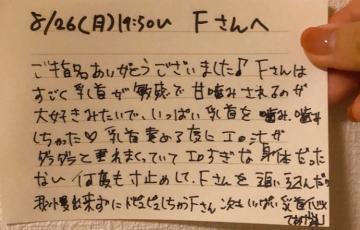 8/26(月)19:50〜 Fさんへ
ご指名ありがとうございました♪ Fさんは
すごく乳首が敏感で甘噛みされるのが
大好きみたいで、いっぱい乳首を噛み噛み
しちゃった♡ 乳首責める度にエロ汁が
ダラダラと垂れまくっていてエロすぎな身体だった
ない 何度も寸止めして、Fさんを追い込んだら
我慢出来ずにドピュドピュしちゃうFさん 次もいっぱい乳首